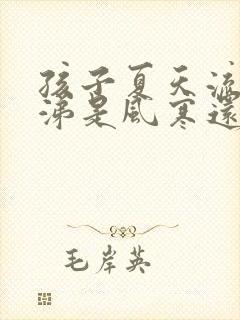 孩子夏天流
涕是風寒還
毛岸英